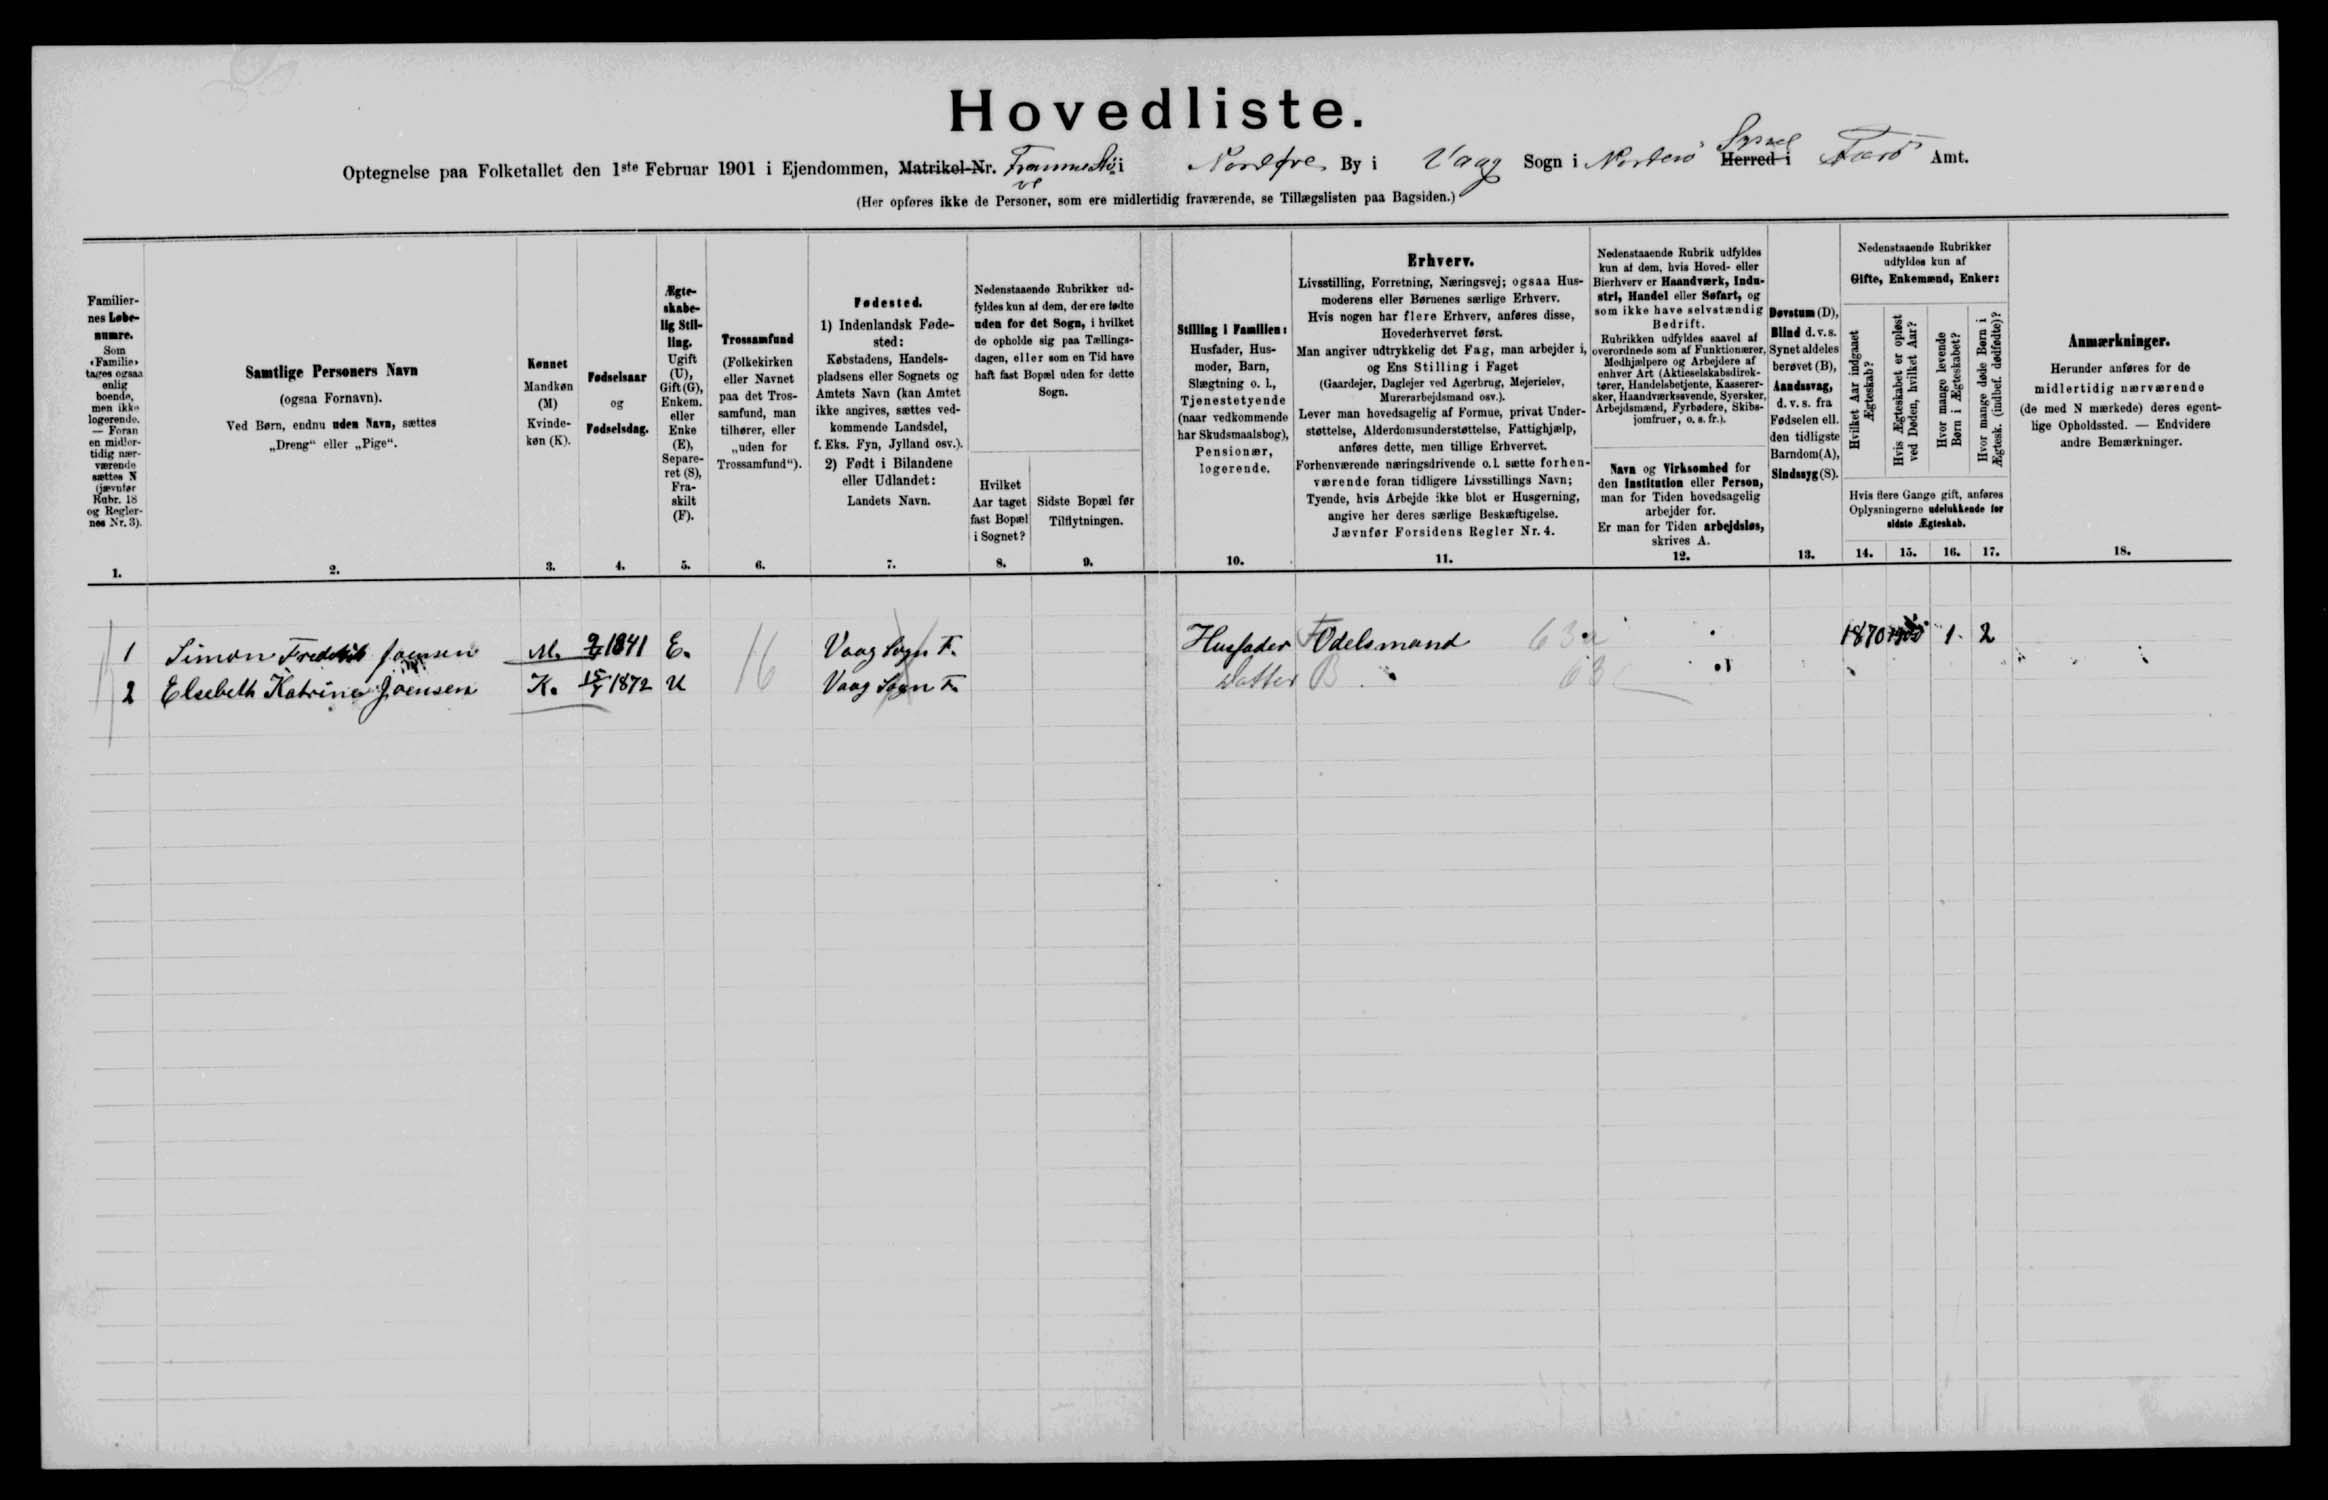 Hovedliste.
Optegnelse paa Folketallet den 1ste Februar 1901 i Ejendommen, Matrikel-Nr. i Nordøre By i Vaag Sogn i Norderø Herred i Syssel Færø Amt.
(Her opføres ikke de Personer, som ere midlertidig fraværende, se Tillægslisten paa Bagsiden.)
Familier-
nes Løbe-
numre.
Som
«Familie»
tages ogsaa
enlig
boende,
men ikke
logerende.
— Foran
en midler-
tidig nær-
værende
sættes N
(jævnfør
Rubr. 18
og Regler-
nes Nr. 3).
1.
Samtlige Personers Navn
(ogsaa Fornavn).
Ved Børn, endnu uden Navn, sættes
„Dreng“ eller „Pige“.
2.
Kønnet
Mandkøn
(M)
Kvinde-
køn (K).
3.
Fødselsaar
og
Fødselsdag.
4.
Ægte-
skabe-
lig Stil-
ling.
Ugift
(U),
Gift (G),
Enkem.
eller
Enke
(E),
Separe-
ret (S),
Fra-
skilt
(F).
5.
Trossamfund
(Folkekirken
eller Navnet
paa det Tros-
samfund, man
tilhører, eller
„uden for
Trossamfund“).
6.
Fødested.
1) Indenlandsk Føde-
sted:
Købstadens, Handels-
pladsens eller Sognets og
Amtets Navn (kan Amtet
ikke angives, sættes ved-
kommende Landsdel,
f. Eks. Fyn, Jylland osv.).
2) Født i Bilandene
eller Udlandet:
Landets Navn.
7.
Nedenstaaende Rubrikker ud-
fyldes kun af dem, der ere fødte
uden for det Sogn, i hvilket
de opholde sig paa Tællings-
dagen, eller som en Tid have
haft fast Bopæl uden for dette
Sogn.
Hvilket
Aar taget
fast Bopæl
i Sognet?
8.
Sidste Bopæl før
Tilflytningen.
9.
Stilling i Familien:
Husfader, Hus-
moder, Barn,
Slægtning o. l.,
Tjenestetyende
(naar vedkommende
har Skudsmaalsbog),
Pensionær,
logerende.
10.
Erhverv.
Livsstilling, Forretning, Næringsvej; ogsaa Hus-
moderens eller Børnenes særlige Erhverv.
Hvis nogen har flere Erhverv, anføres disse,
Hovederhvervet først.
Man angiver udtrykkelig det Fag, man arbejder i,
og Ens Stilling i Faget
(Gaardejer, Daglejer ved Agerbrug, Mejerielev,
Murerarbejdsmand osv.).
Lever man hovedsagelig af Formue, privat Under-
støttelse, Alderdomsunderstøttelse, Fattighjælp,
anføres dette, men tillige Erhvervet.
Forhenværende næringsdrivende o. l. sætte forhen-
værende foran tidligere Livsstillings Navn;
Tyende, hvis Arbejde ikke blot er Husgerning,
angive her deres særlige Beskæftigelse.
Jævnfør Forsidens Regler Nr. 4.
11.
Nedenstaaende Rubrik udfyldes
kun af dem, hvis Hoved- eller
Bierhverv er Haandværk, Indu-
stri, Handel eller Søfart, og
som ikke have selvstændig
Bedrift.
Rubrikken udfyldes saavel af
overordnede som af Funktionærer,
Medhjælpere og Arbejdere af
enhver Art (Aktieselskabsdirek-
tører, Handelsbetjente, Kasserer-
sker, Haandværkssvende, Syersker,
Arbejdsmænd, Fyrbødere, Skibs-
jomfruer, o. s. fr.).
Navn og Virksomhed for
den Institution eller Person,
man for Tiden hovedsagelig
arbejder for.
Er man for Tiden arbejdsløs,
skrives A.
12.
Døvstum (D),
Blind d. v. s.
Synet aldeles
berøvet (B),
Aandssvag,
d. v. s. fra
Fødselen ell.
den tidligste
Barndom (A),
Sindssyg (S).
13.
Nedenstaaende Rubrikker
udfyldes kun af
Gifte, Enkemænd, Enker:
Hvilket Aar indgaaet
Ægteskab?
Hvis Ægteskabet er opløst
ved Døden, hvilket Aar?
Hvor mange levende
Børn i Ægteskabet?
Hvor mange døde Børn i
Ægtesk. (indbef. dødfødte)?
Hvis flere Gange gift, anføres
Oplysningerne udelukkende for
sidste Ægteskab.
14. 15. 16. 17.
Anmærkninger.
Herunder anføres for de
midlertidig nærværende
(de med N mærkede) deres egent-
lige Opholdssted. — Endvidere
andre Bemærkninger.
18.
1 Simon Frederik Joensen M. 1841 E. Vaag Sogn F. Husfader Odelsmand 63a 1870 1900 1 2
2 Elsebeth Katrina Joensen K. 1872 U 16 Vaag Sogn F. Datter B 63